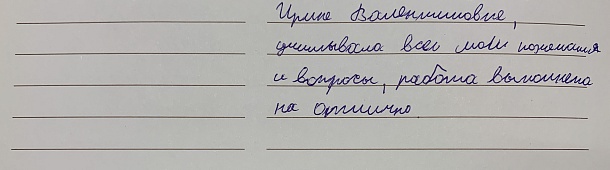 Ирине Валентиновне,
учитывала все мои пожелания
и вопросы, работа выполнена
на отлично.